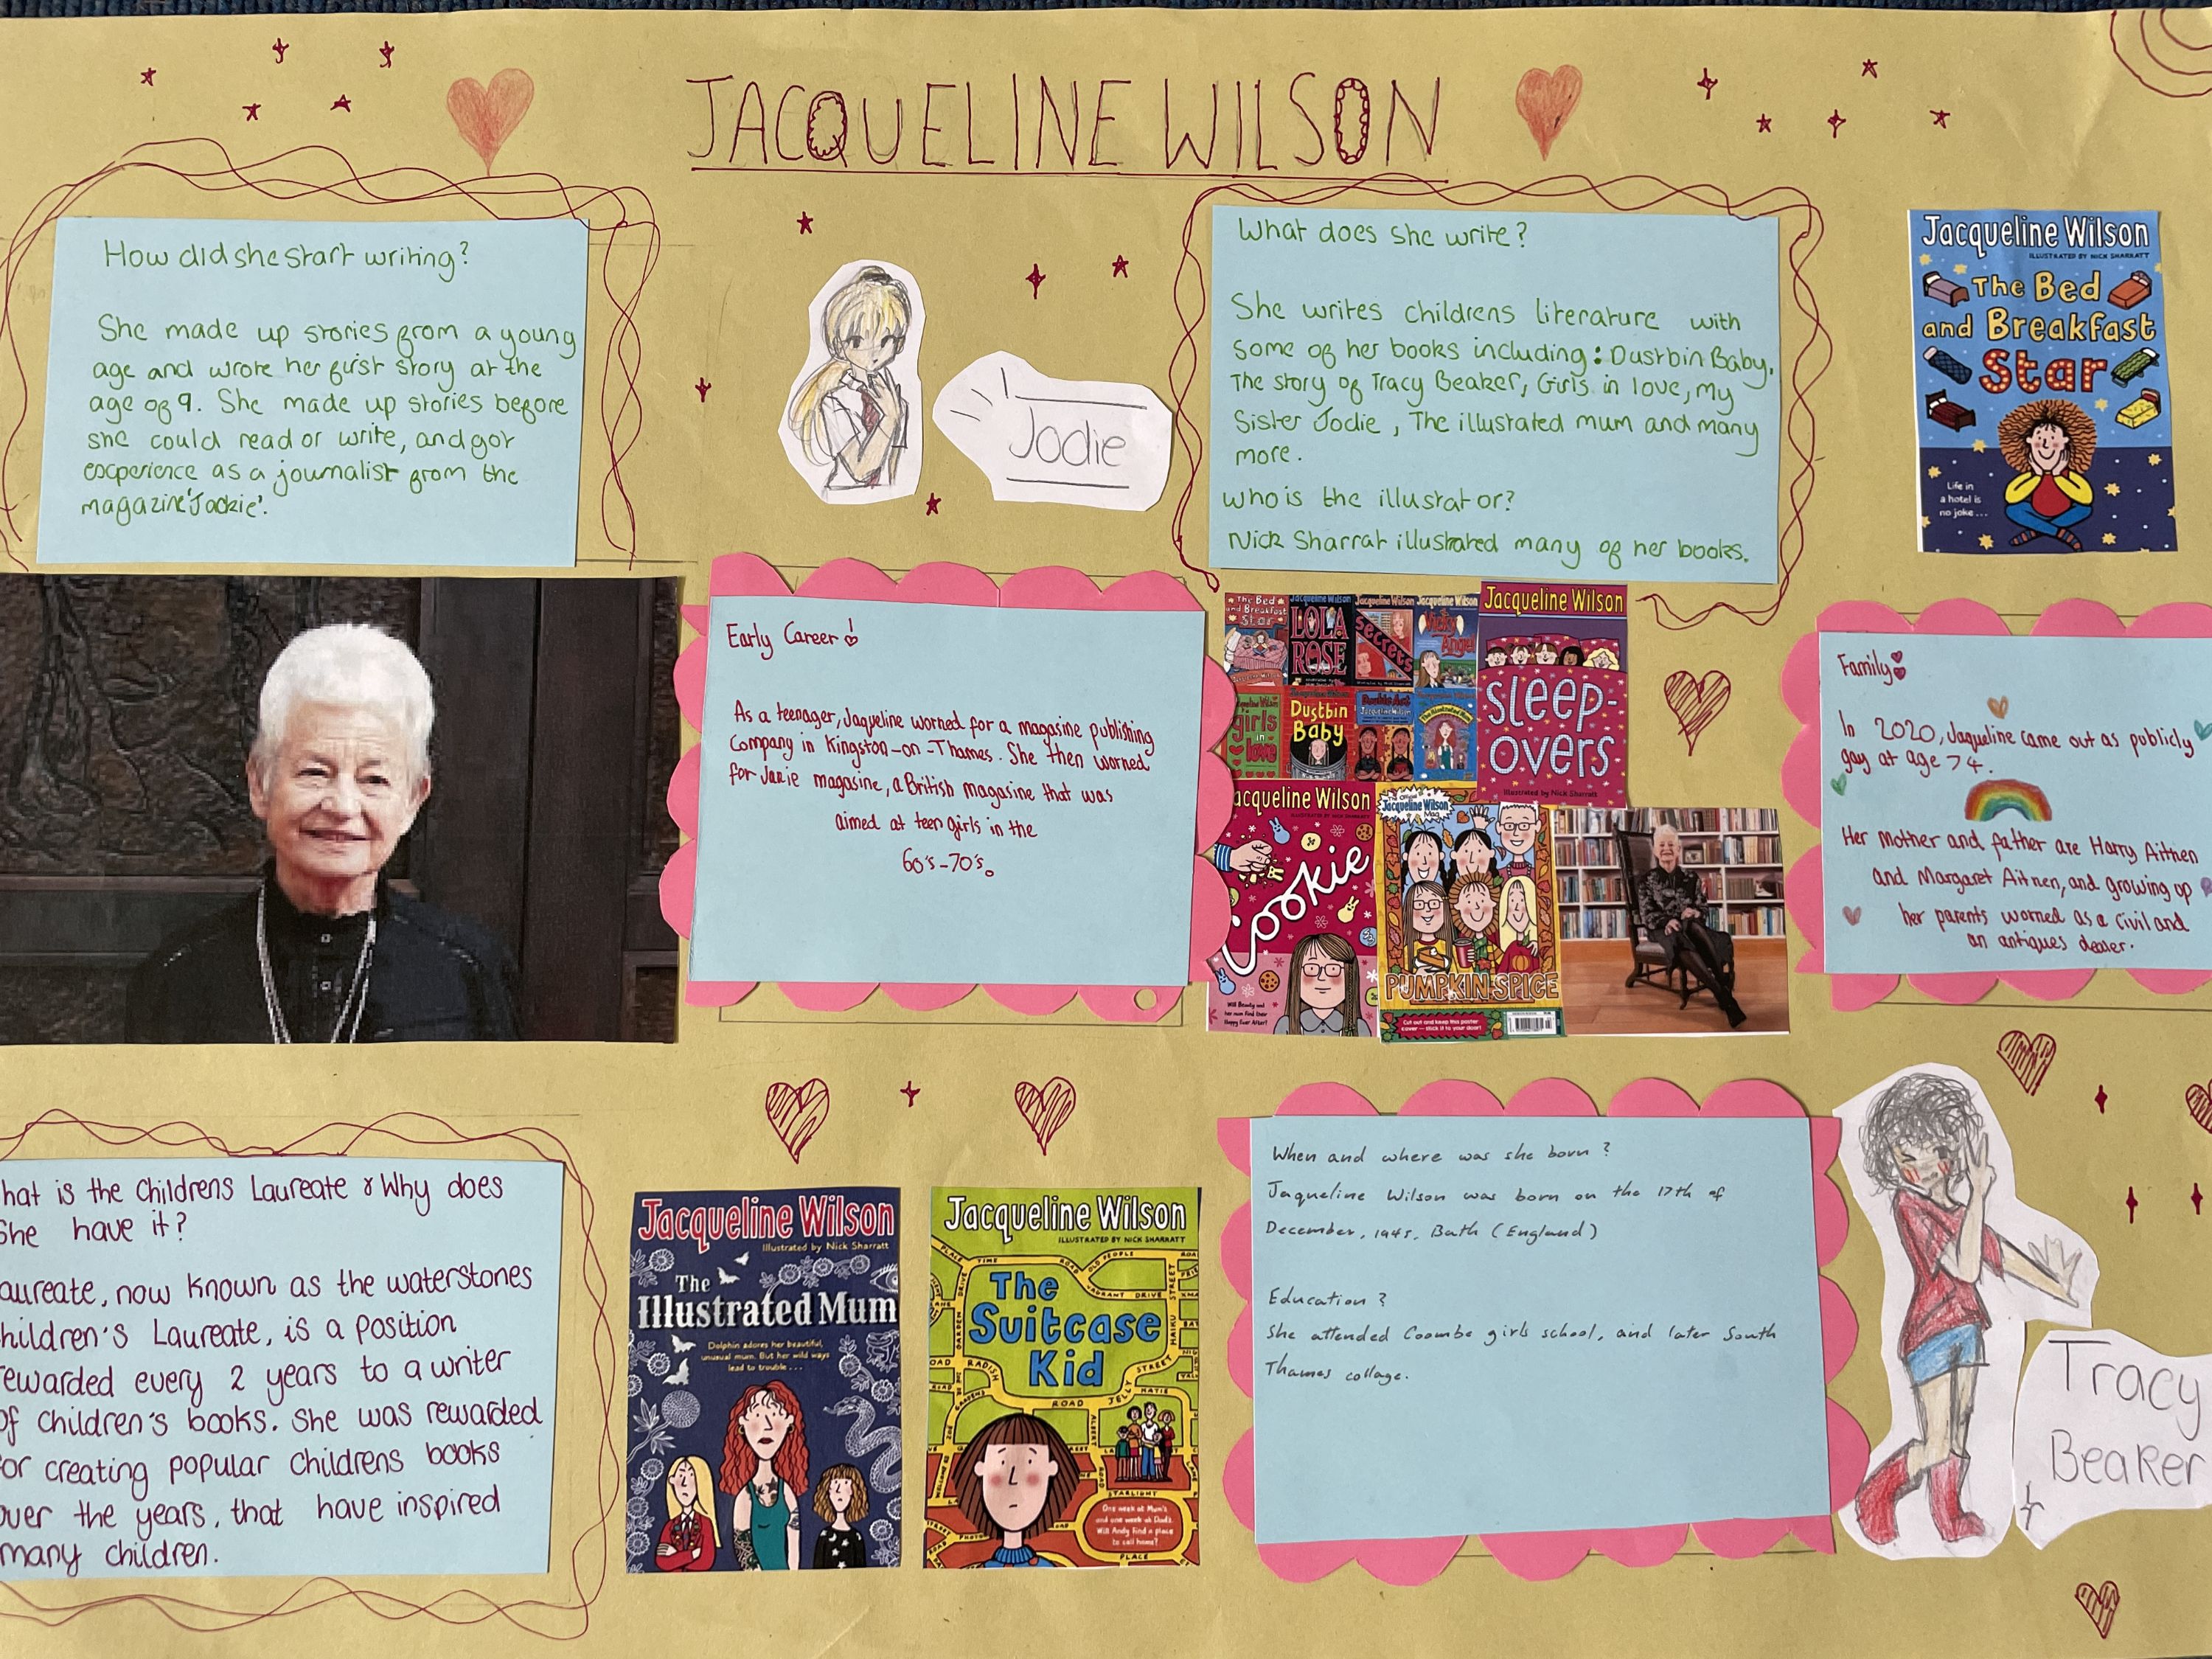 JACQUELINE WILSON
How did she start writing?
She made up stories from a young
age and wrote her first story at the
age of 9. She made up stories before
she could read or write, and got
excperience as a journalist from the
magazine 'Jackie'.
Jodie
What does she write?
She writes childrens literature with
some of her books including: Dustbin Baby,
The story of Tracy Beaker, Girls in love, My
Sister Jodie, The illustrated mum and many
more.
who is the illustrator?
Nick Sharrat illustrated many of her books.
Jacqueline Wilson
ILLUSTRATED BY NICK SHARRATT
The Bed
and Breakfast
Star
Life in
a hotel is
no joke...
Early Career!
As a teenager, Jaqueline worked for a magasine publishing
Company in Kingston-on-Thames. She then worked
for Jakie magasine, a British magasine that was
aimed at teen girls in the
60's-70's.
The Bed
and Breakfast
Star
Jacqueline Wilson
LOLA
ROSE
Jacqueline Wilson
Secrets
Jacqueline Wilson
Vicky
Angel
girls
in
love
Dustbin
Baby
Double Act
Jacqueline Wilson
The Illustrated Mum
Jacqueline Wilson
SLEEP-
OVERS
Illustrated by Nick Sharratt
acqueline Wilson
ILLUSTRATED BY NICK SHARRATT
Cookie
Will Beauty and
her mum find their
Happy Ever After?
The Official
Jacqueline Wilson
Mag
PUMPKIN SPICE
Cut out and keep this poster
cover – stick it to your door!
Family
In 2020, Jaqueline came out as publicly
gay at age 74.
Her mother and father are Harry Aitken
and Margaret Aitken, and growing up
her parents worked as a civil and
an antiques dealer.
hat is the Childrens Laureate & Why does
She have it?
aureate, now known as the waterstones
hildren's Laureate, is a position
rewarded every 2 years to a writer
of children's books. She was rewarded
for creating popular childrens books
over the years, that have inspired
many children.
Jacqueline Wilson
Illustrated by Nick Sharratt
The
Illustrated Mum
Dolphin adores her beautiful,
unusual mum. But her wild ways
lead to trouble...
Jacqueline Wilson
ILLUSTRATED BY NICK SHARRATT
The
Suitcase
Kid
One week at Mum's
and one week at Dad's.
Will Andy find a place
to call home?
When and where was she born?
Jaqueline Wilson was born on the 17th of
December, 1945, Bath (England)
Education?
She attended Coombe girls school, and later South
Thames collage.
Tracy
Beaker